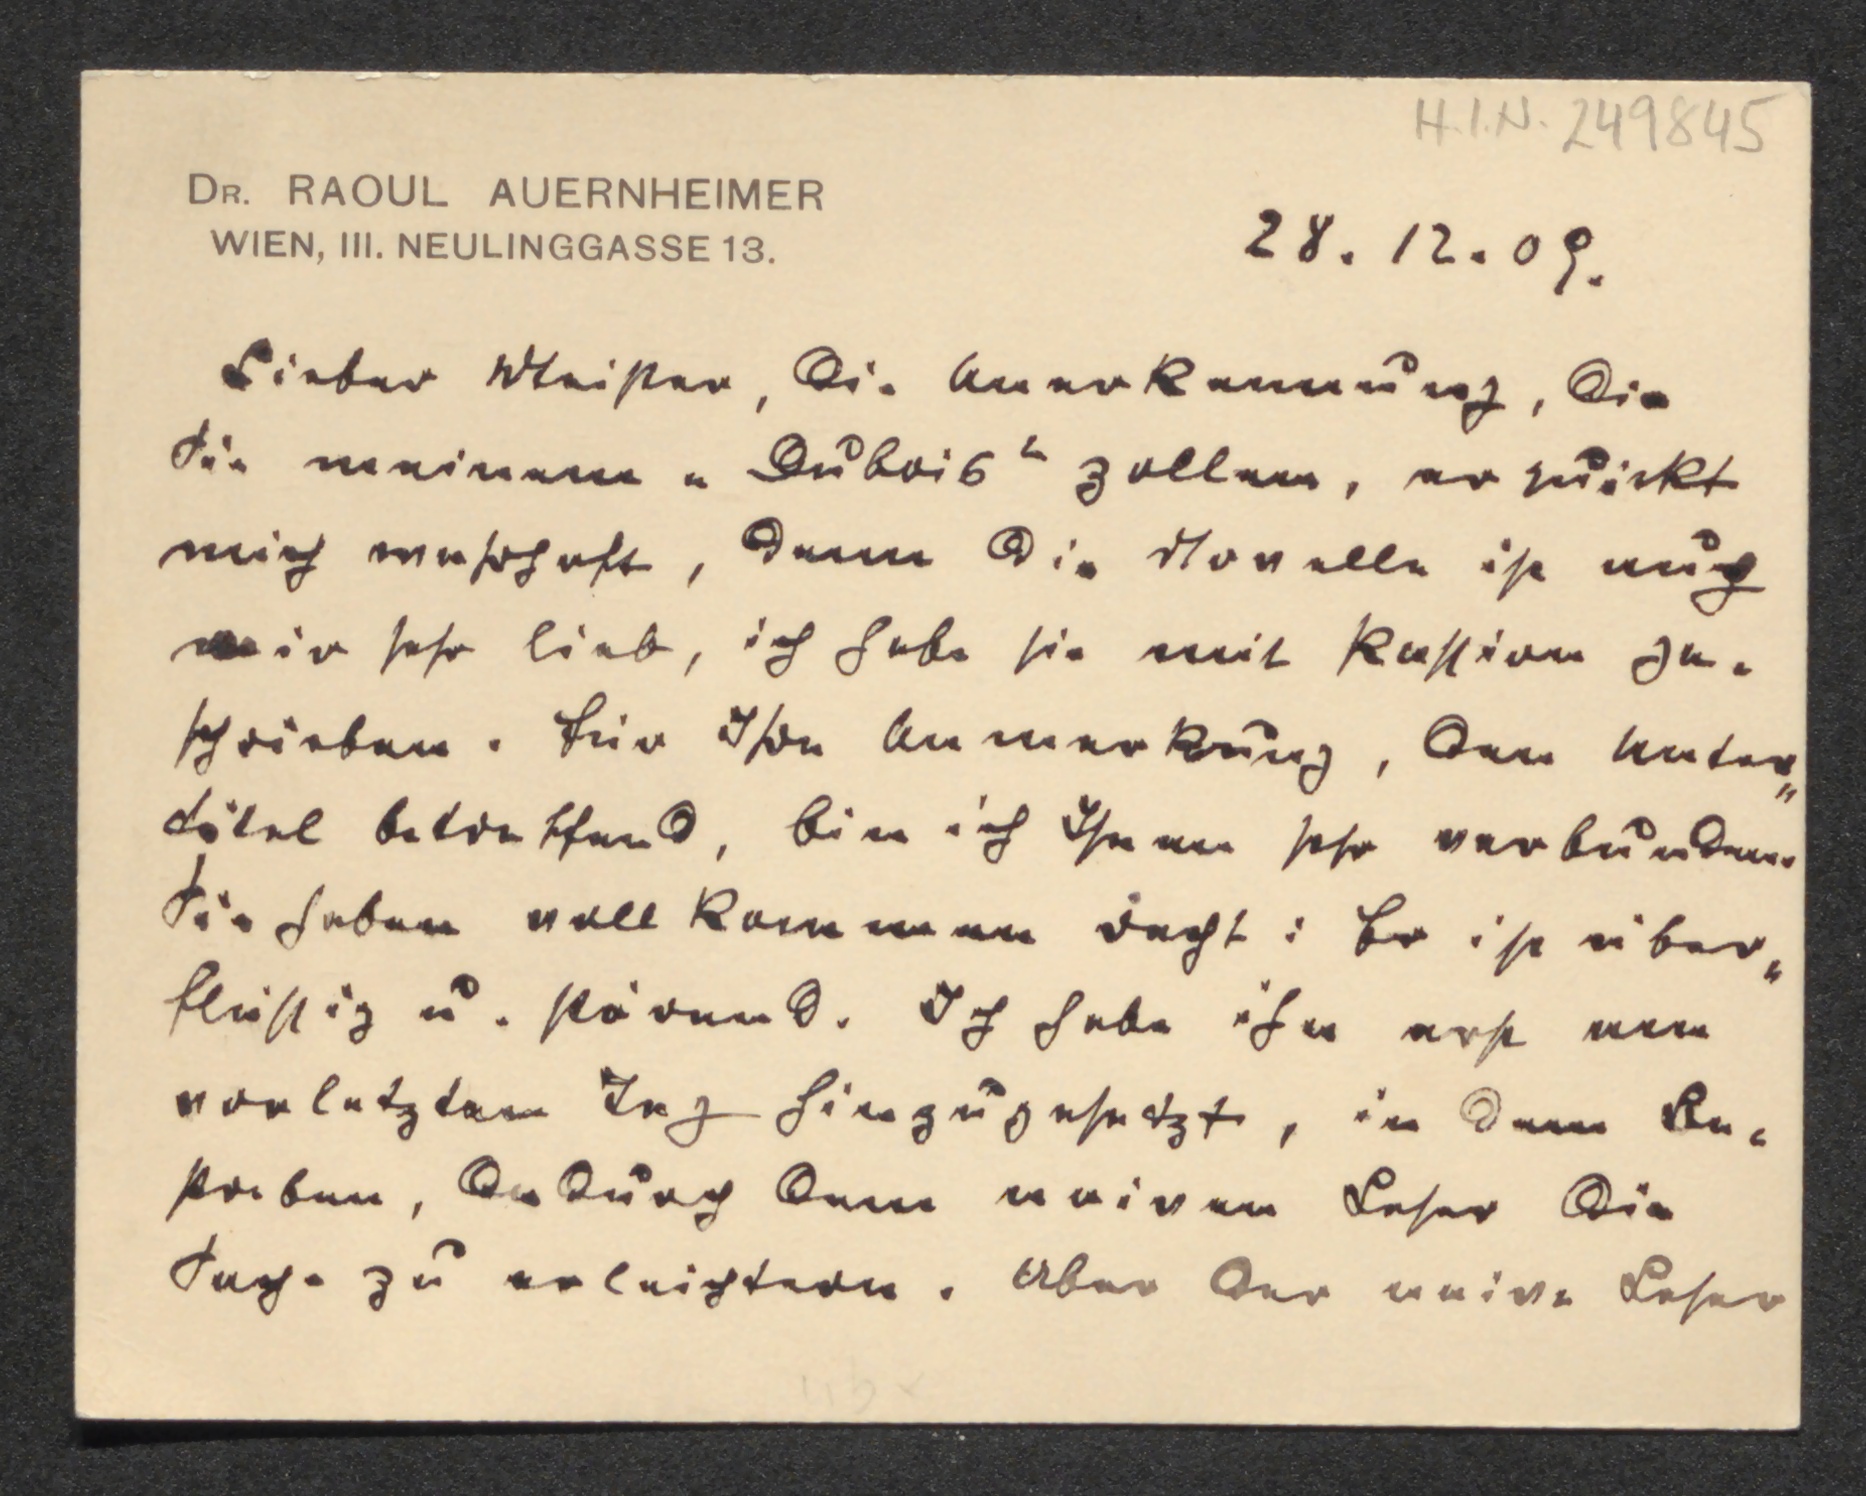 H.I.N. 249845
DR. RAOUL AUERNHEIMER
WIEN, III. NEULINGGASSE 13.
28. 12. 09.
Lieber Meister, die Anerkennung, die
Sie meinem „Dubois“ zollen, erquickt
mich wahrhaft, denn die Novelle ist auch
mir sehr lieb, ich habe sie mit Passion ge-
schrieben. Für Ihre Anmerkung, den Unter„
titel betreffend, bin ich Ihnen sehr verbunden.
Sie haben vollkommen recht: Er ist über„
flüssig u. störend. Ich habe ihn erst am
vorletzten Tag hinzugesetzt, in dem Be-
streben, dadurch dem naiven Leser die
Sache zu erleichtern. Aber der naive Leser